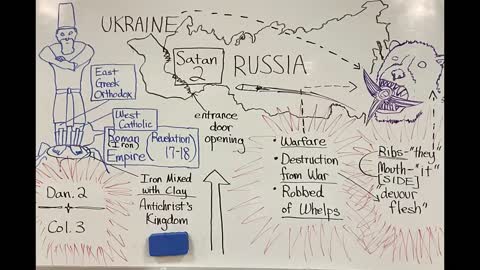 UKRAINE
Satan
2
RUSSIA
East
Greek
Orthodox
West
Catholic
Roman
(Iron)
Empire
Revelation
17-18
entrance
door
opening
Iron Mixed
with Clay
Antichrist's
Kingdom
Dan. 2
Col. 3
• Warfare
• Destruction
from War
• Robbed
of Whelps
Ribs-"they"
Mouth-"it"
[SIDE]
"devour
flesh"